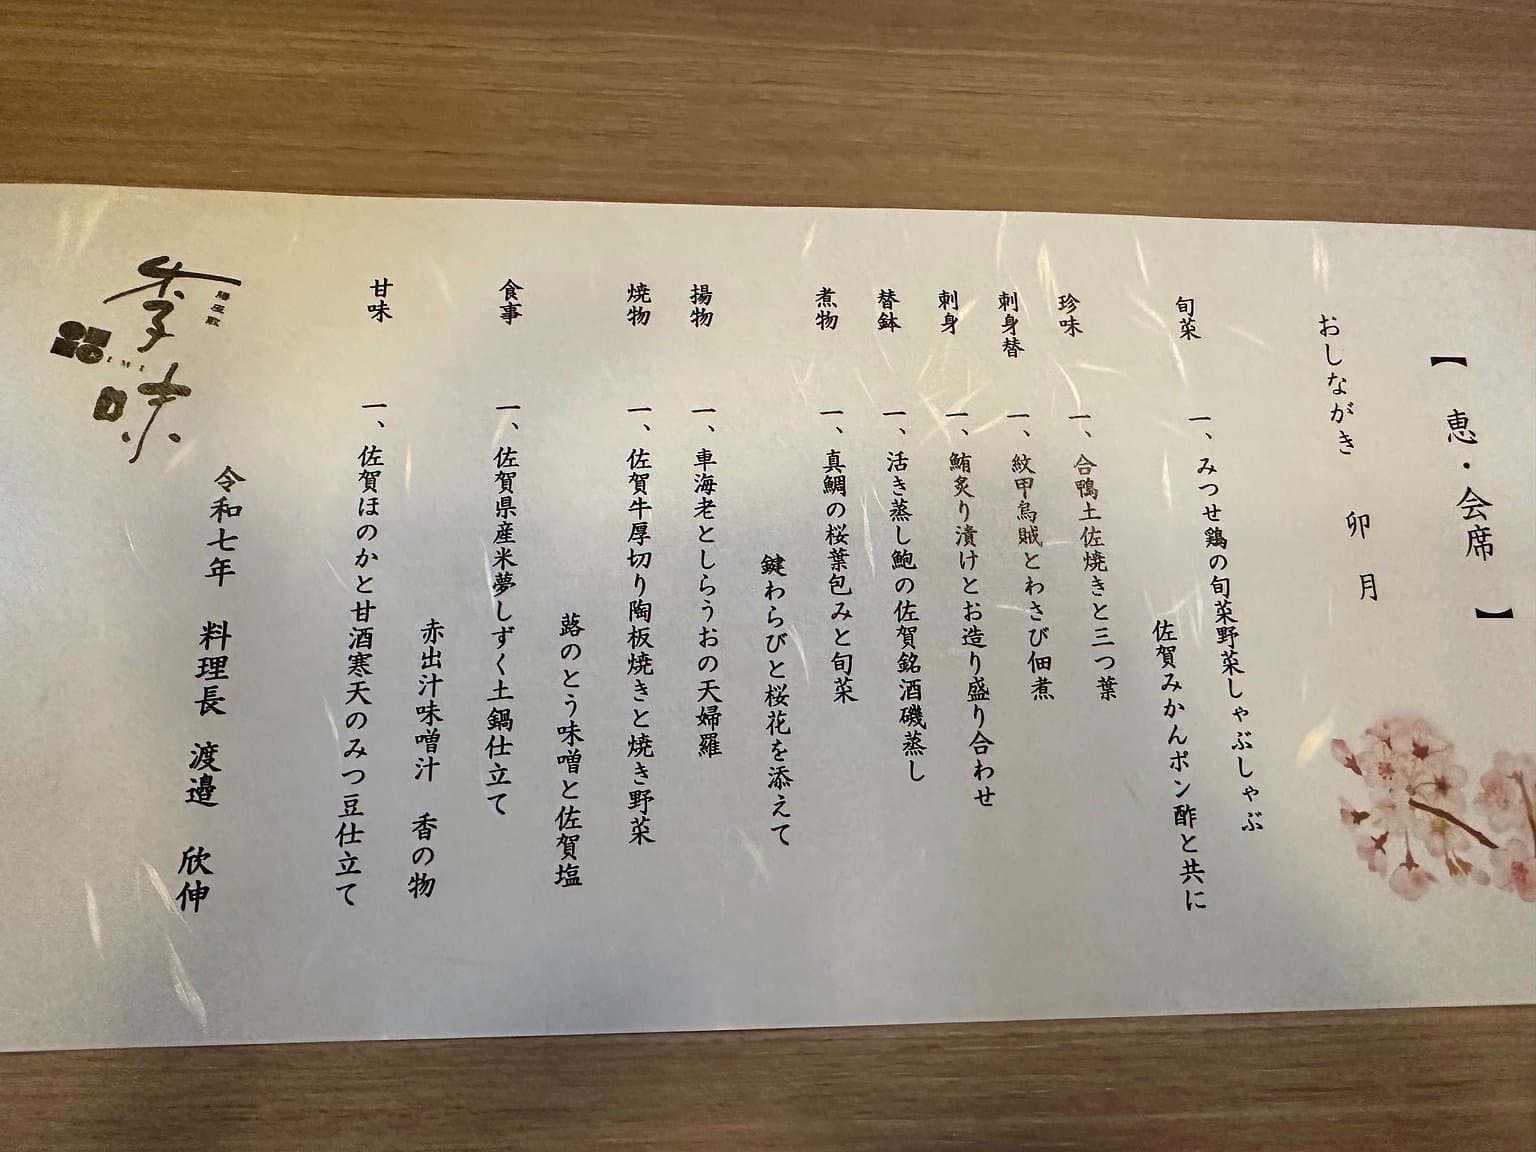 【 恵・会席 】
おしながき 卯月
旬菜 一、みつせ鶏の旬菜野菜しゃぶしゃぶ
佐賀みかんポン酢と共に
珍味 一、合鴨土佐焼きと三つ葉
刺身替 一、紋甲烏賊とわさび佃煮
刺身 一、鮪炙り漬けとお造り盛り合わせ
替鉢 一、活き蒸し鮑の佐賀銘酒磯蒸し
煮物 一、真鯛の桜葉包みと旬菜
鍵わらびと桜花を添えて
揚物 一、車海老としらうおの天婦羅
焼物 一、佐賀牛厚切り陶板焼きと焼き野菜
蕗のとう味噌と佐賀塩
食事 一、佐賀県産米夢しずく土鍋仕立て
赤出汁味噌汁 香の物
甘味 一、佐賀ほのかと甘酒寒天のみつ豆仕立て
令和七年 料理長 渡邉 欣伸
季味